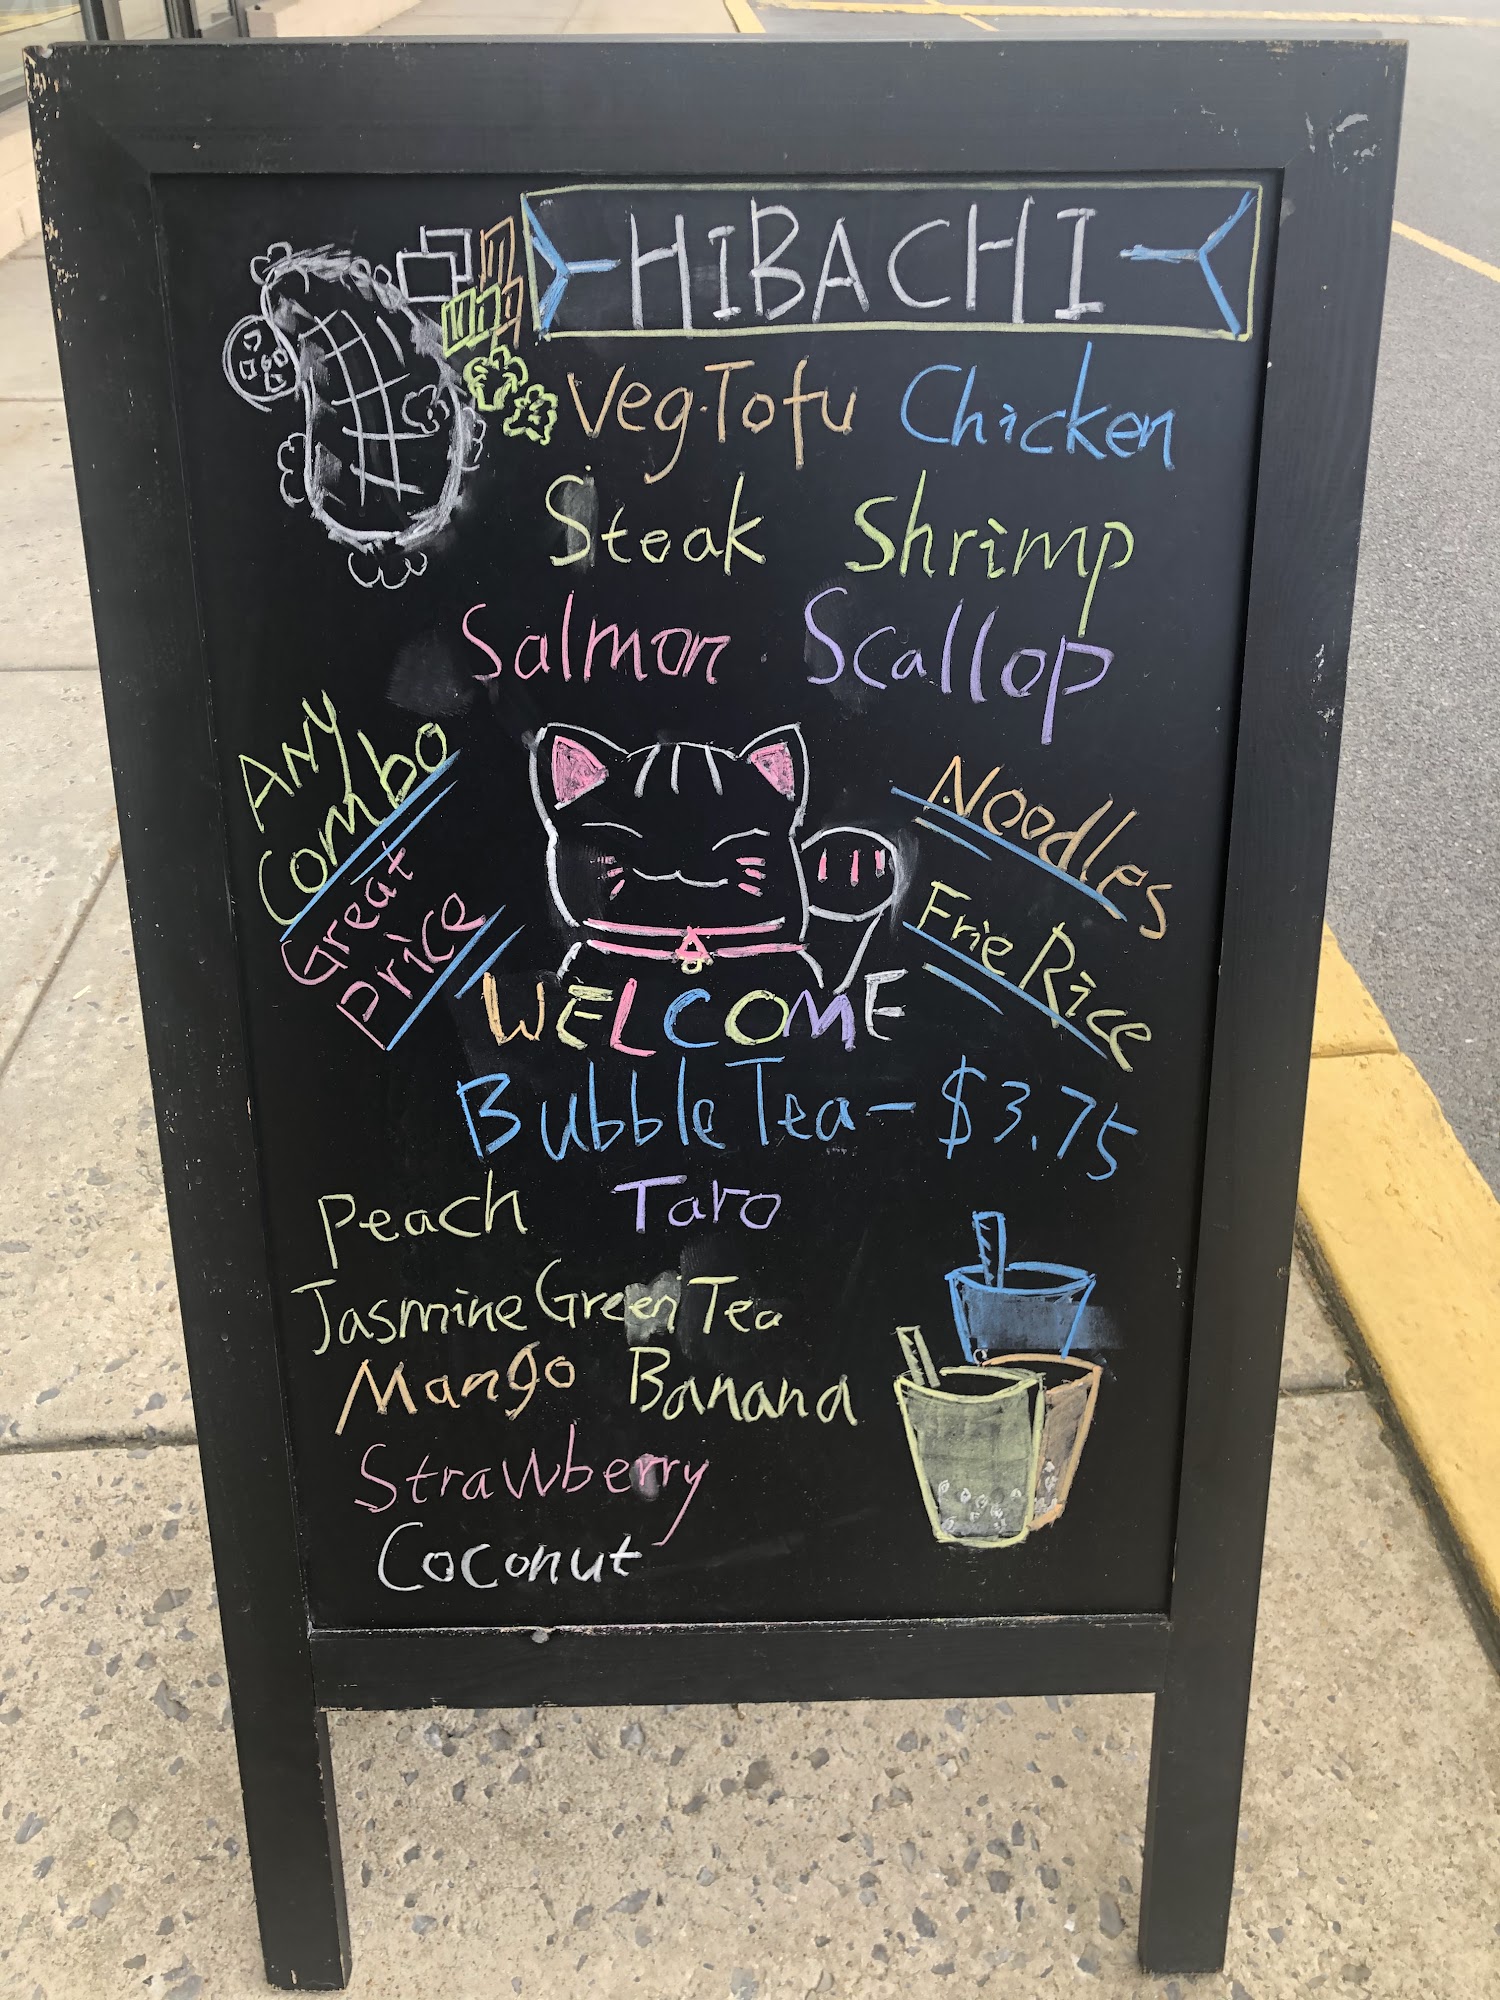 HiBACHI
Veg.Tofu Chicken
Steak Shrimp
Salmon Scallop
Any
Combo
Great
Price
Noodles
Frie Rice
WELCOME
Bubble Tea - $3.75
Peach Taro
Jasmine Green Tea
Mango Banana
Strawberry
Coconut